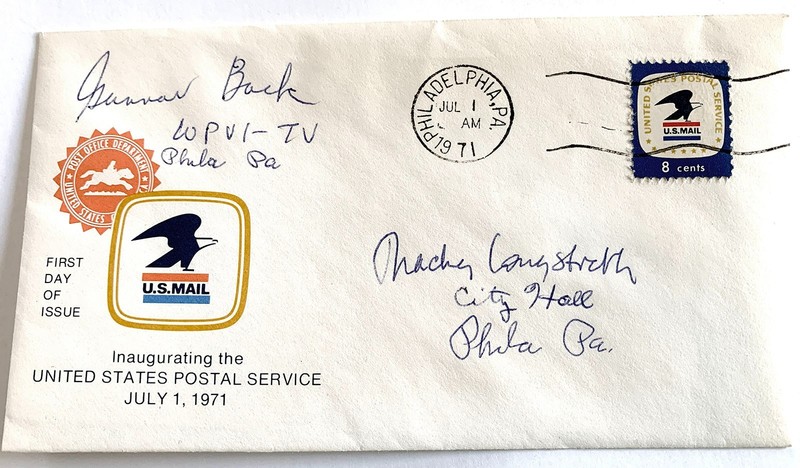 Gunnar Back
WPVI-TV
Phila Pa
POST OFFICE DEPARTMENT
UNITED STATES
U.S. MAIL
FIRST
DAY
OF
ISSUE
Inaugurating the
UNITED STATES POSTAL SERVICE
JULY 1, 1971
PHILADELPHIA, PA.
JUL 1
AM
1971
UNITED STATES POSTAL SERVICE
U.S. MAIL
8 cents
Thacher Longstreth
City Hall
Phila Pa.